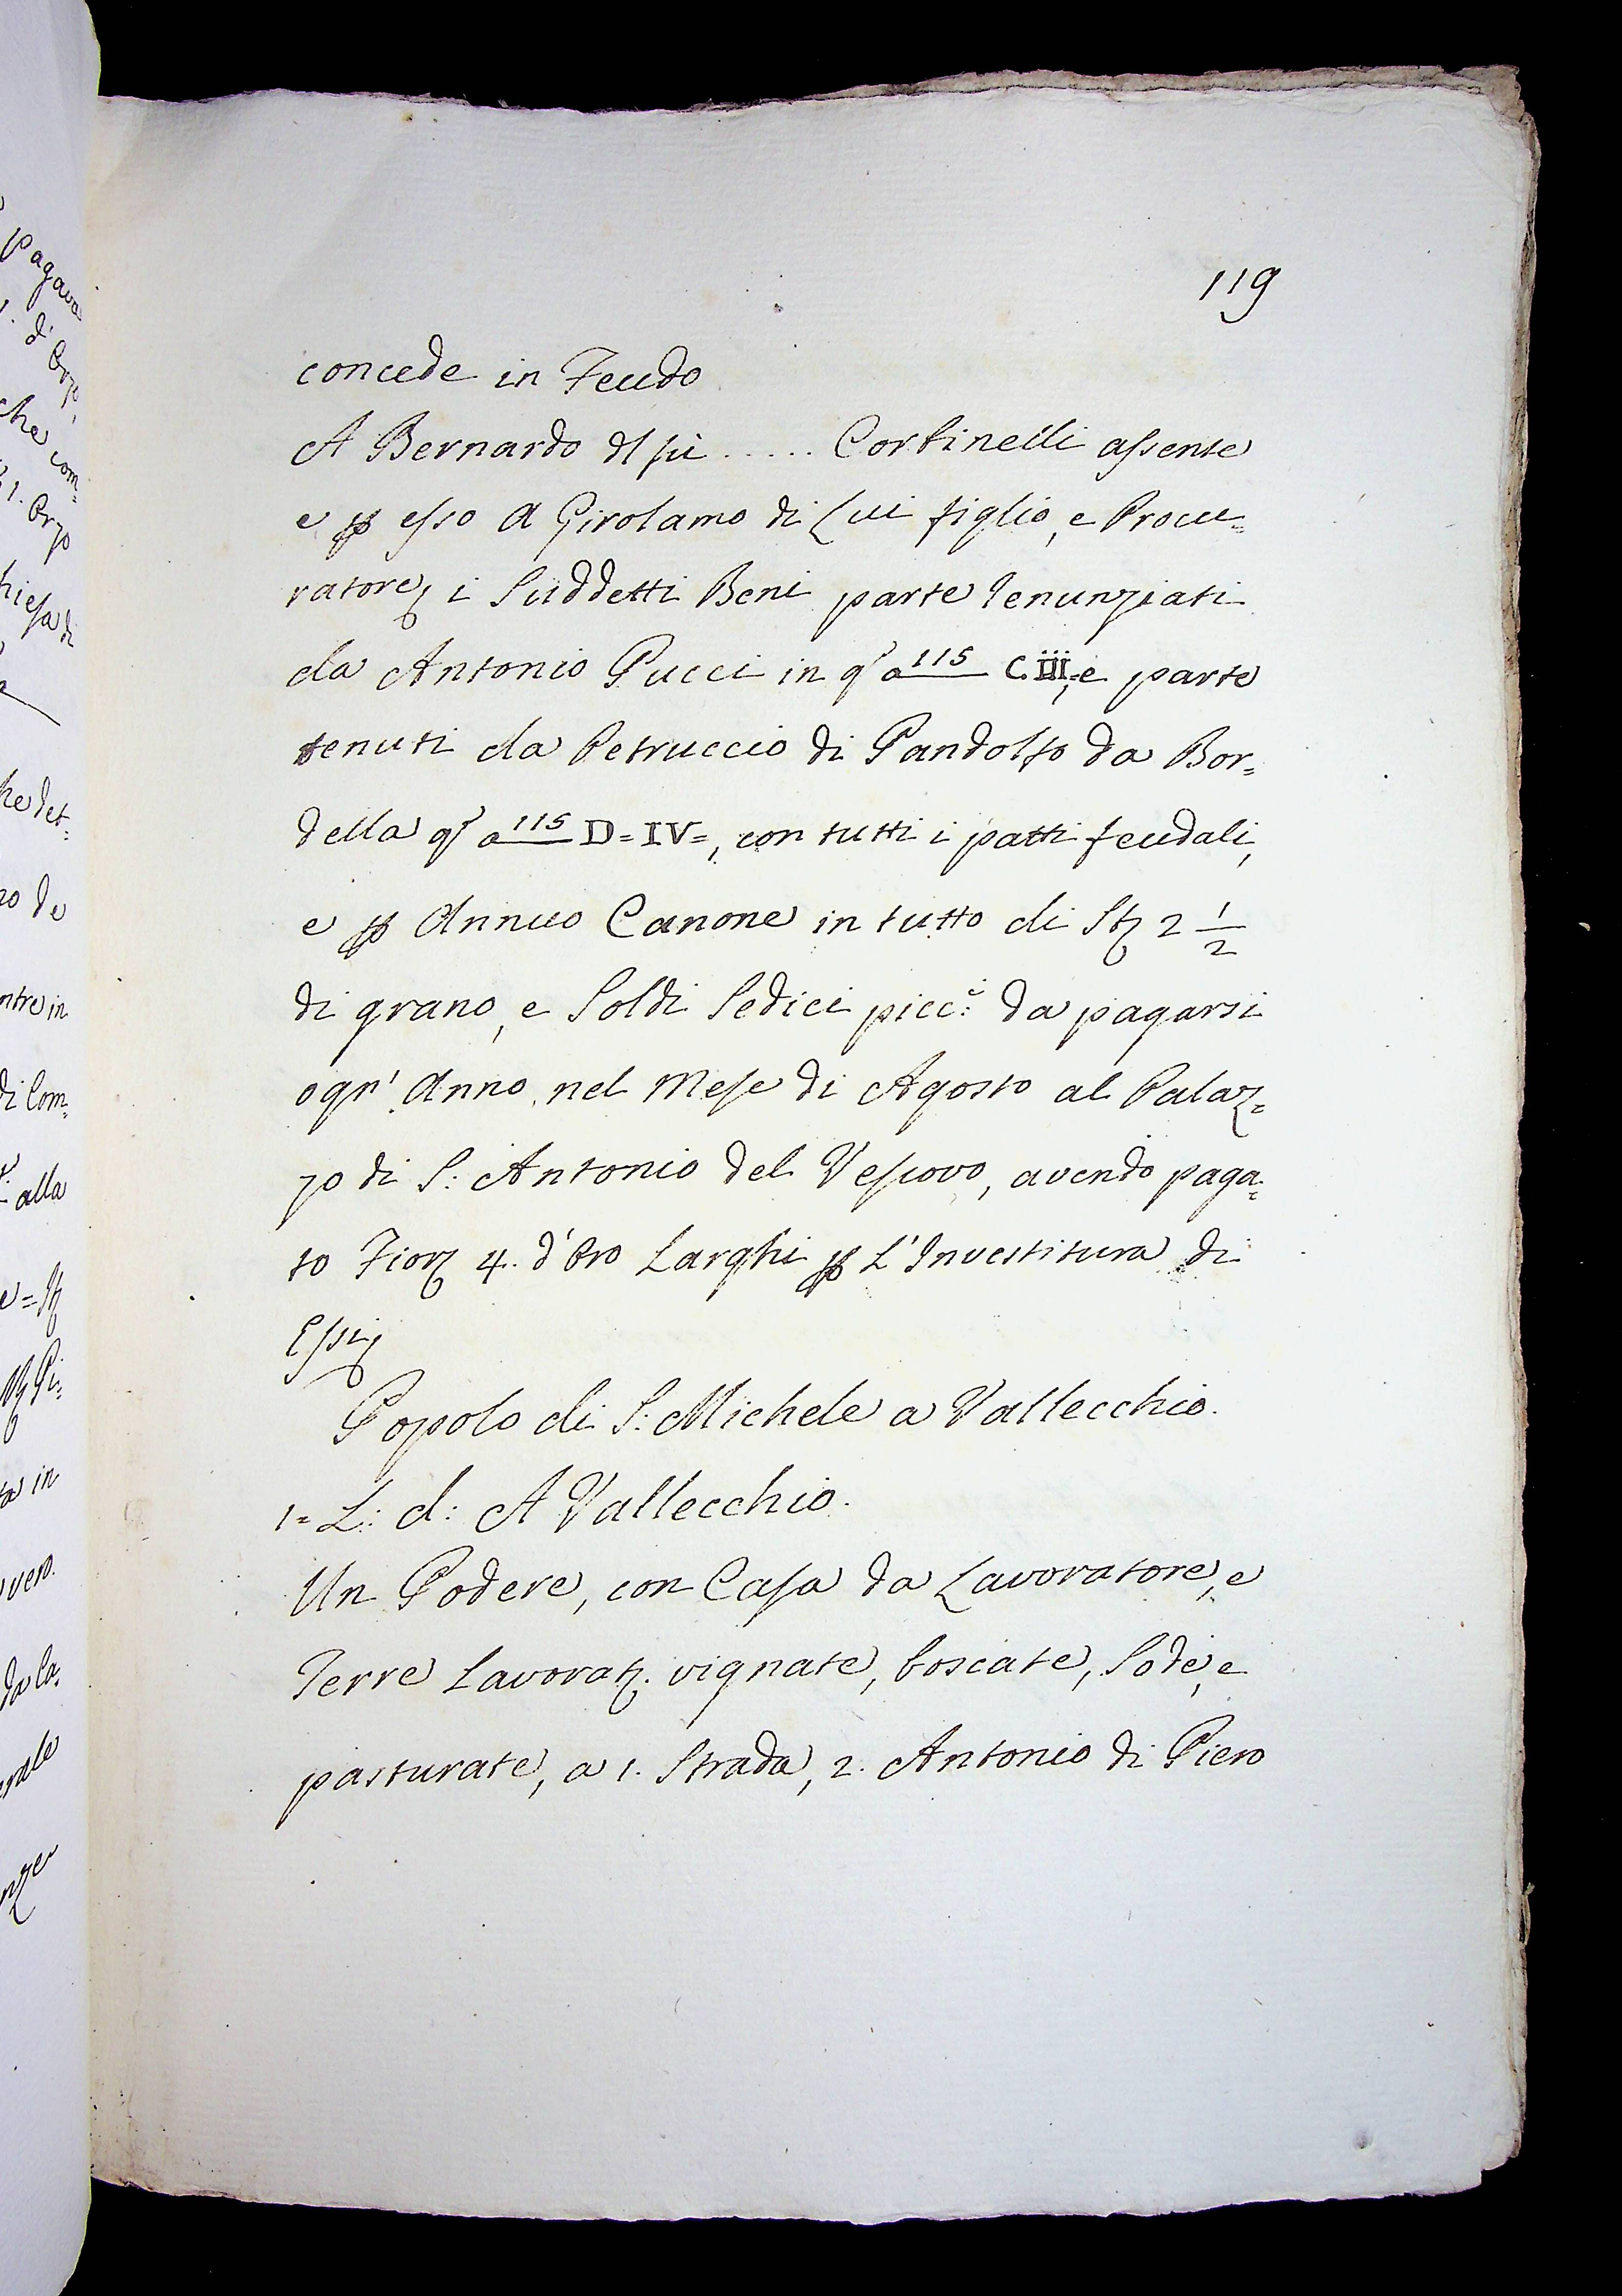 119
concede in Feudo
A Bernardo dl fù ..... Corbinelli assente
e p esso a Girolamo di Lui figlio, e Procu=
ratore i Suddetti Beni parte renunziati
da Antonio Pucci in qo a 115 C.III, e parte
tenuti da Petruccio di Pandolfo da Bor=
della qo a 115 D=IV=, con tutti i patti feudali,
e p Annuo Canone in tutto di St 2 1/2
di grano, e Soldi Sedici picc:i da pagarsi
ogn' Anno nel Mese di Agosto al Palaz=
zo di S: Antonio del Vescovo, avendo paga=
to Fior 4. d'Oro Larghi p L'Investitura di
Essi
Popolo di S: Michele a Vallecchio.
1= L: d: A Vallecchio.
Un Podere, con Casa da Lavoratore, e
Terre Lavorat. vignate, boscate, Sode, e
pasturate, a 1. Strada, 2. Antonio di Piero